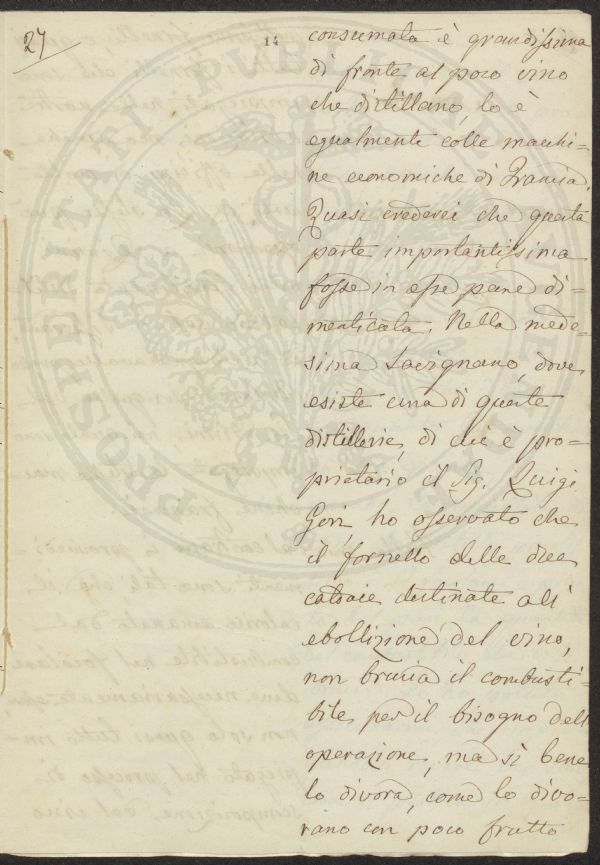 27
14
consumata è grandissima
di fronte al poco vino
che distillano, lo è
egualmente colle macchi=
ne economiche di Francia.
Quasi crederei che questa
parte importantissima
fosse in esse pane di=
menticata. Nella mede=
sima Savignano, dove
esiste una di queste
distillerie, di cui è pro=
prietario il Sig. Luigi
Gori ho osservato che
il fornello delle due
caldaie destinate all'
ebollizione del vino,
non brucia il combusti=
bile per il bisogno dell'
operazione, ma si bene
lo divora, come lo divo=
rano con poco frutto